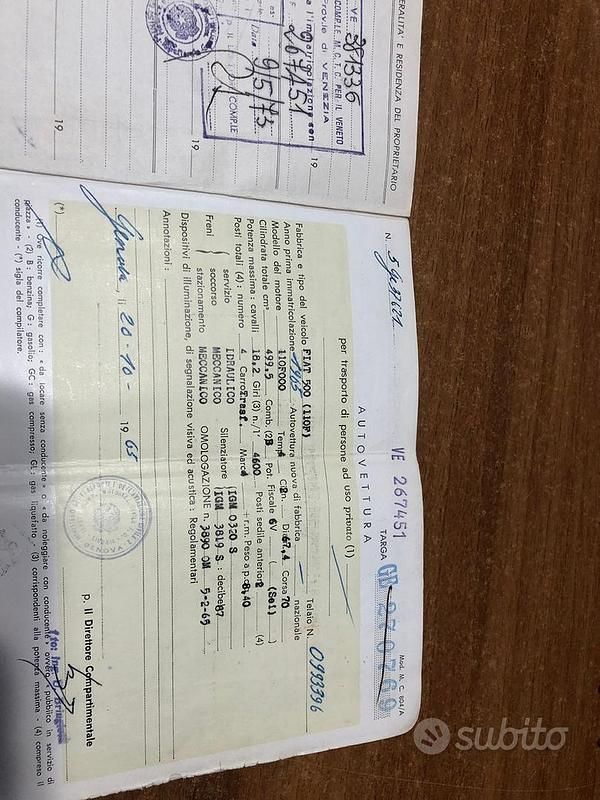 VE 281336
COMPLE M. C. T. C. PER IL VENETO
Prov.le di VENEZIA
267451
Data 9/5/73
COMP.LE
19
19
19
GENERALITA' E RESIDENZA DEL PROPRIETARIO
Mod. M. C. 804/A
VE 267451
TARGA
270769
AUTOVETTURA
per trasporto di persone ad uso privato (1)
Telaio N. 0993396
Fabbrica e tipo del veicolo FIAT 500 (110F)
Anno prima immatricolazione 1965 Autovettura nuova di fabbrica nazionale
Modello del motore 110F000 Tempi 4 Cil. 2 n. Di 67,4 Corsa 70
Cilindrata totale cm³ 499,5 Comb. (2) B Pot. Fiscale 6 V (Sei)
Potenza massima: cavalli 18,2 Giri (3) n./1' 4600 Posti sedile anteriore 2 (4)
Posti totali (4): numero 4 Carroz Trasf. Marce 4 + r.m. Peso a p.c. 8,40
Freni
servizio IDRAULICO
soccorso MECCANICO
stazionamento MECCANICO
Silenziatore IGM 0320 S
IGM 3819 S : decibel 87
OMOLOGAZIONE n. 3890 OM 5-2-65
Dispositivi di illuminazione, di segnalazione visiva ed acustica: Regolamentari
Annotazioni:
Genova, il 20-10- 19 65
p. Il Direttore Compartimentale
(*)
(1) Ove ricorre completare con: « da locare senza conducente » o « da noleggiare con conducente » ovvero « pubblico in servizio di
piazza » - (2) B: benzina; G: gasolio; GC: gas compresso; GL: gas liquefatto - (3) corrispondenti alla potenza massima - (4) compreso il
conducente - (*) sigla del compilatore.
subito